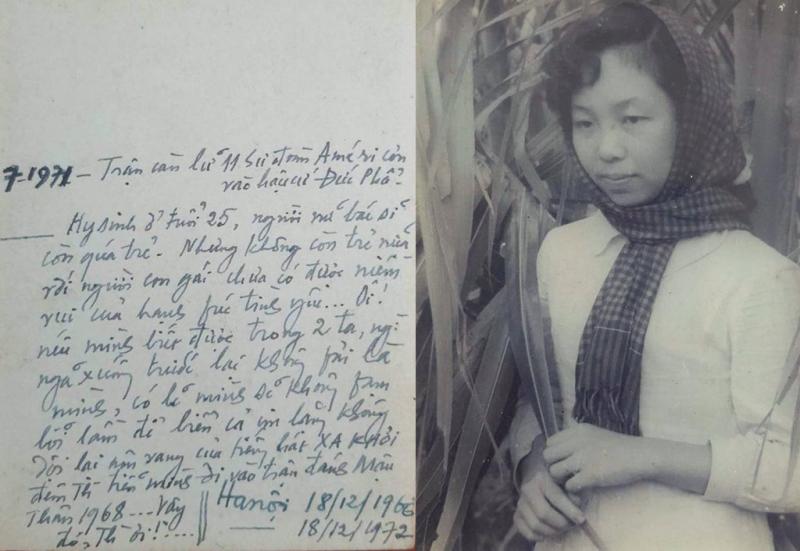 7-1971 - Trận càn lữ 11 Sư đoàn Américơn
vào hậu cứ Đức Phổ.
Hy sinh ở tuổi 25, người nữ bác sĩ
còn quá trẻ. Nhưng không còn trẻ nữa
với người con gái chưa có được niềm
vui của hạnh fúc tình yêu... Ôi!
nếu mình biết được trong 2 ta, ng
ngã xuống trước lại không fải là
mình, có lẽ mình sẽ không fạm
lỗi lầm để biển cả im lặng không
dội lại âm vang của tiếng hát XA KHƠI
đêm Th tiễn mình đi vào trận đánh Mậu
Thân 1968... Vậy
đó, Th ơi!...
Hanội 18/12/1966
18/12/1972